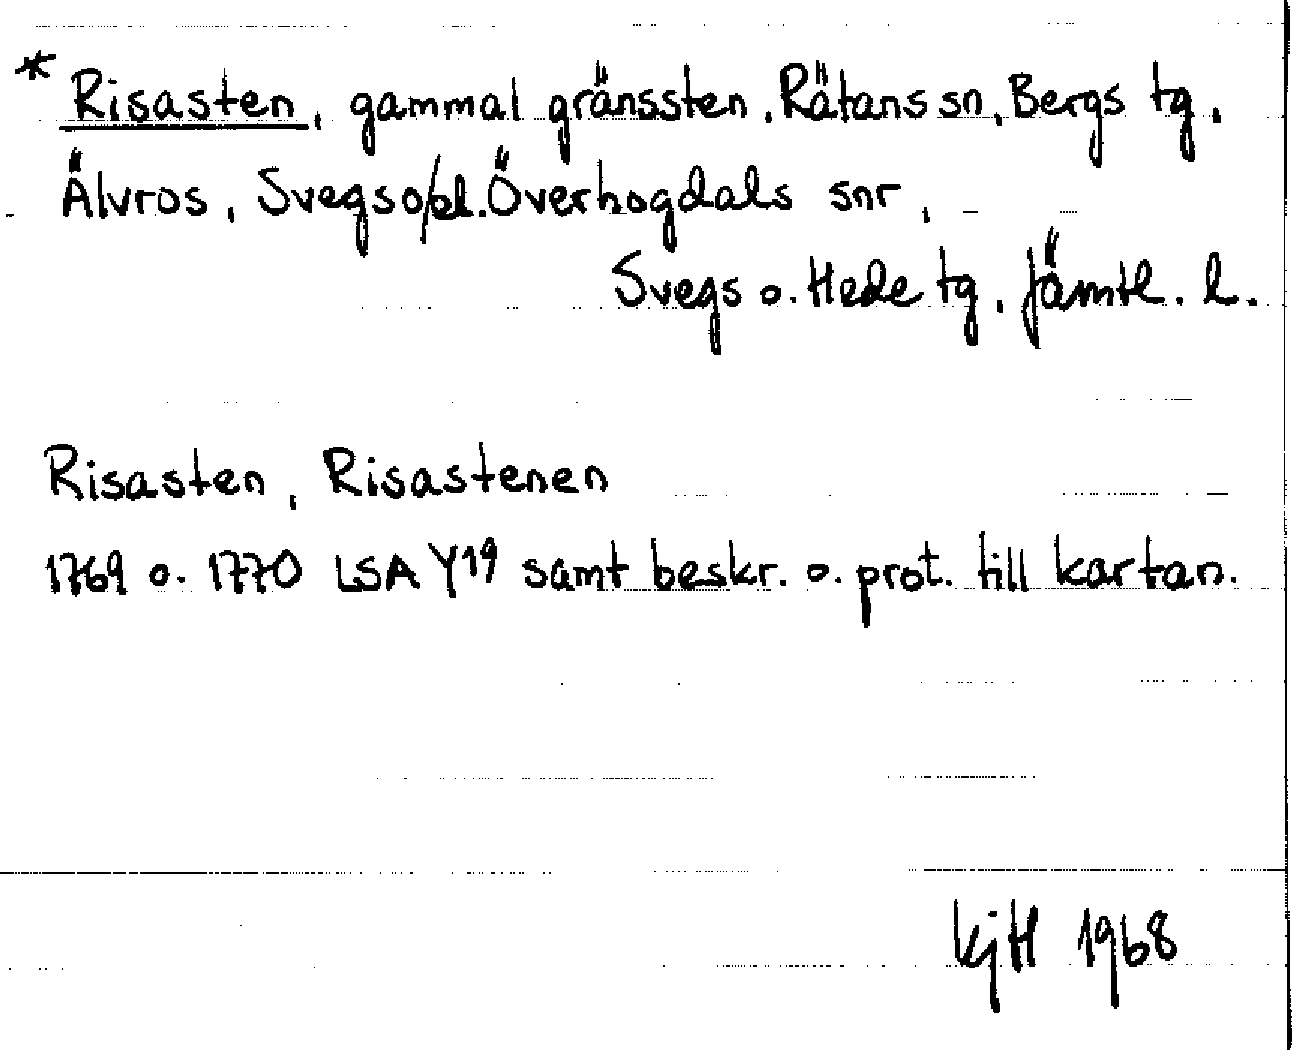 * Risasten, gammal gränssten, Rätans sn, Bergs tg,
Älvros, Svegs o/el. Överhogdals snr,
Svegs o. Hede tg, Jämtl. l.
Risasten, Risastenen
1769 o. 1770 LSA Y19 samt beskr. o. prot. till kartan.
KjH 1968